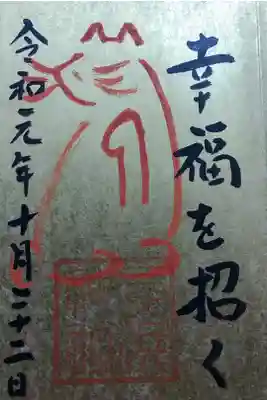 幸福を招く
令和元年十月二十二日